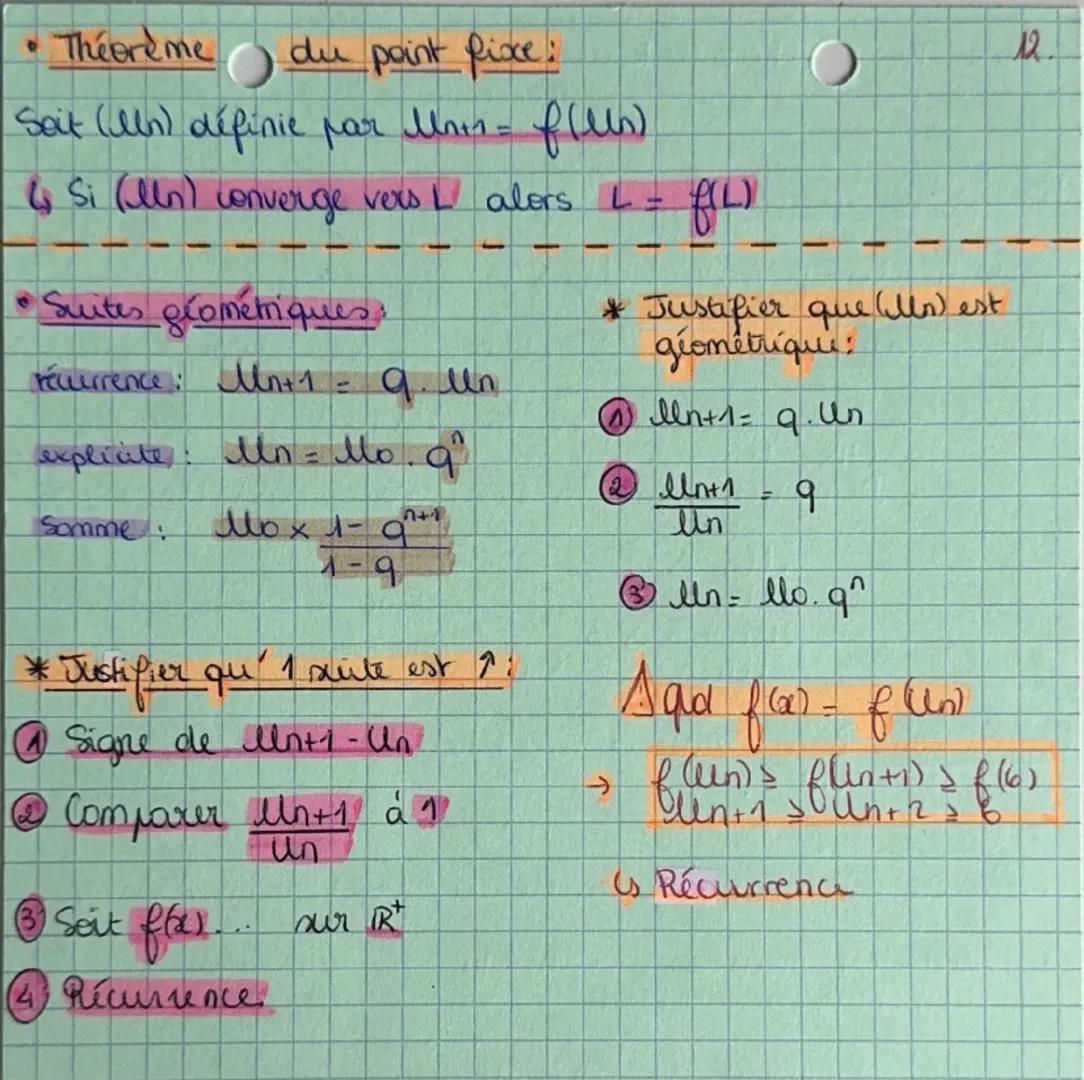 12.
• Théorème du point fixe :
Soit (Un) définie par Un+1 = f(Un)
↳ Si (Un) converge vers L alors L = f(L)
• Suites géométriques :
récurrence : Un+1 = q . Un
explicite : Un = U0 . qⁿ
Somme : U0 × (1 - qⁿ⁺¹)/(1 - q)
* Justifier que (Un) est
géométrique :
① Un+1 = q . Un
② Un+1/Un = q
③ Un = U0 . qⁿ
* Justifier qu' 1 suite est ↑ :
① Signe de Un+1 - Un
② Comparer Un+1/Un à 1
③ Soit f(x) ... sur ℝ⁺
④ Récurrence
⚠ qd f(x) = f(Un)
→ f(Un) ≥ f(Un+1) ≥ f(6)
Un+1 ≥ Un+2 ≥ 6
↳ Récurrence